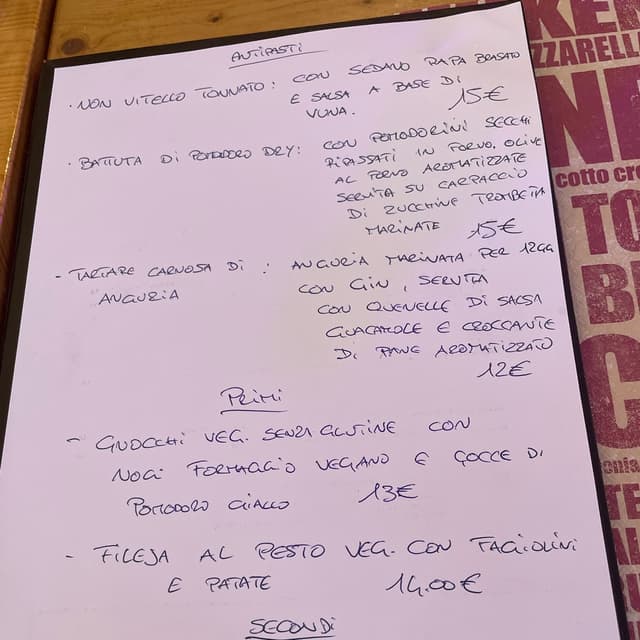 ANTIPASTI
· NON VITELLO TONNATO: CON SEDANO RAPA BRASATO
E SALSA A BASE DI
VUNA. 15€
· BATTUTA DI POMODORO DRY: CON POMODORINI SECCHI
RIPASSATI IN FORNO, OLIVE
AL FORNO AROMATIZZATE
SERVITA SU CARPACCIO
DI ZUCCHINE TROMBETTA
MARINATE 15€
- TARTARE CARNOSA DI : ANGURIA MARINATA PER 12GG
ANGURIA CON GIN, SERVITA
CON QUENELLE DI SALSA
GUACAMOLE E CROCCANTE
DI PANE AROMATIZZATO
12€
PRIMI
- GNOCCHI VEG. SENZA GLUTINE CON
NOCI FORMAGGIO VEGANO E GOCCE DI
POMODORO GIALLO 13€
- FILEJA AL PESTO VEG. CON FAGIOLINI
E PATATE 14.00€
SECONDI
KE
ZZARELL
NE
cotto cr
TO
B
C
onia
TE